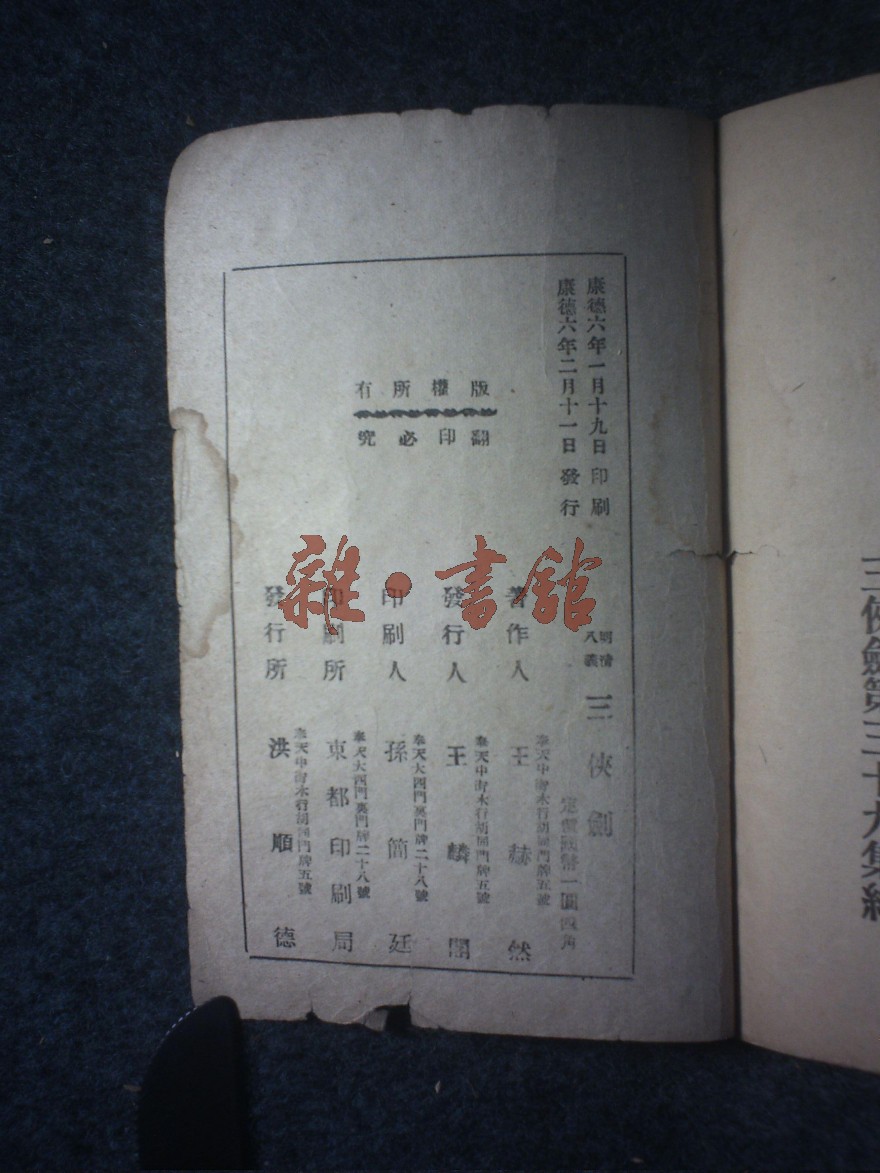 康德六年一月十九日印刷
康德六年二月十一日發行
版權所有
翻印必究
明清
八義
三俠劍
定價國幣一圓四角
著作人
奉天中街水行胡同門牌五號
王赫然
發行人
奉天中街水行胡同門牌五號
王麟閣
印刷人
奉天大西門裏門牌二十八號
孫簡廷
印刷所
奉天大西門裏門牌二十八號
東都印刷局
發行所
奉天中街水行胡同門牌五號
洪順德
三俠劍第三十九集終
雜·書舘